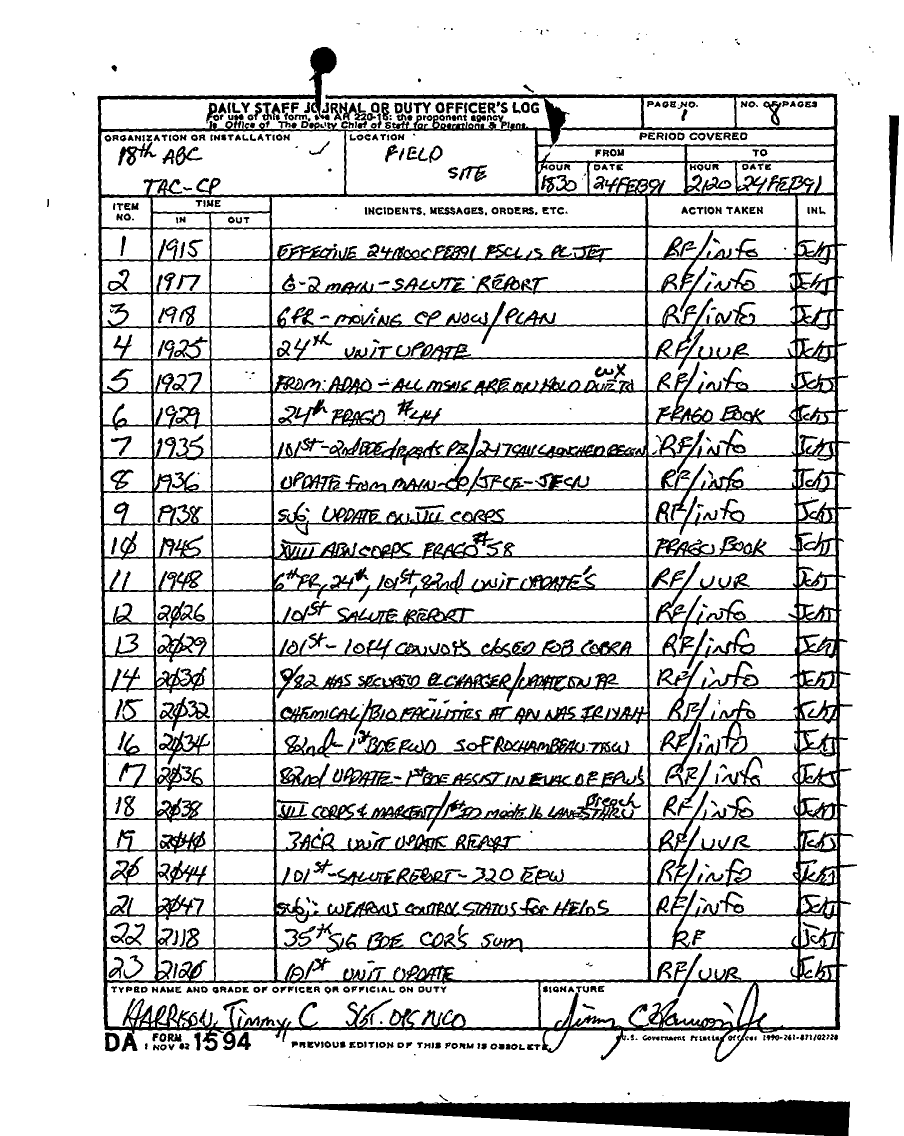 DAILY STAFF JOURNAL OR DUTY OFFICER'S LOG
For use of this form, see AR 220-15; the proponent agency
is Office of The Deputy Chief of Staff for Operations & Plans.
PAGE NO.
1
NO. OF PAGES
8
ORGANIZATION OR INSTALLATION
18th ABC
TAC-CP
LOCATION
FIELD
SITE
PERIOD COVERED
FROM
TO
HOUR
1830
DATE
24FEB91
HOUR
2120
DATE
24FEB91
ITEM NO.
TIME
IN
OUT
INCIDENTS, MESSAGES, ORDERS, ETC.
ACTION TAKEN
INL
1 1915 EFFECTIVE FEB91 FSCL IS PL JET RF/info
2 1917 G-2 MAIN-SALUTE REPORT RF/info
3 1918 6FR-MOVING CP NOW/PLAN RF/info
4 1925 24th UNIT UPDATE RF/UUR
5 1927 FROM: ADAO-ALL MSNS ARE ON HOLD DUE TO WX RF/info
6 1929 24th FRAGO #44 FRAGO BOOK
7 1935 101st-2nd BDE reports PZ/2-17CAV LAUNCHED RF/info
8 1936 UPDATE from MAIN-CP/ RF/info
9 1938 Subj UPDATE ON VII CORPS RF/info
1Ø 1945 XVIII ABN CORPS FRAGO #58 FRAGO BOOK
11 1948 6th FR, 24th, 101st, 82nd UNIT UPDATE'S RF/UUR
12 2Ø26 101st SALUTE REPORT RF/info
13 2Ø29 101st-1OF4 CONVOYS CLOSED FOB COBRA RF/info
14 2Ø3Ø HAS SECURED CHARGER/UPDATE ON RF/info
15 2Ø32 CHEMICAL/BIO FACILITIES AT AN NAS IRIYAH RF/info
16 2Ø34 82nd-1st BDE FWD S OF ROCHAMBEAU RF/info
17 2Ø36 82nd UPDATE-1st BDE ASSIST IN EVAC OF EPW'S RF/info
18 2Ø38 VII CORPS & /1st ID made 16 LANES THRU breach RF/info
19 2Ø4Ø 3ACR UNIT UPDATE REPORT RF/UUR
2Ø 2Ø44 101st-SALUTE REPORT-320 EPW RF/info
21 2Ø47 Subj: WEAPONS CONTROL STATUS for HELOS RF/info
22 2118 35th SIG BDE CDR'S Sum RF
23 212Ø 101st UNIT UPDATE RF/UUR
TYPED NAME AND GRADE OF OFFICER OR OFFICIAL ON DUTY
HARRISON, Jimmy, C SGT. OPS NCO
SIGNATURE
Jimmy C Harrison Jr
DA FORM 1 NOV 62 1594
PREVIOUS EDITION OF THIS FORM IS OBSOLETE.
U.S. Government Printing Office: 1990-261-871/02728